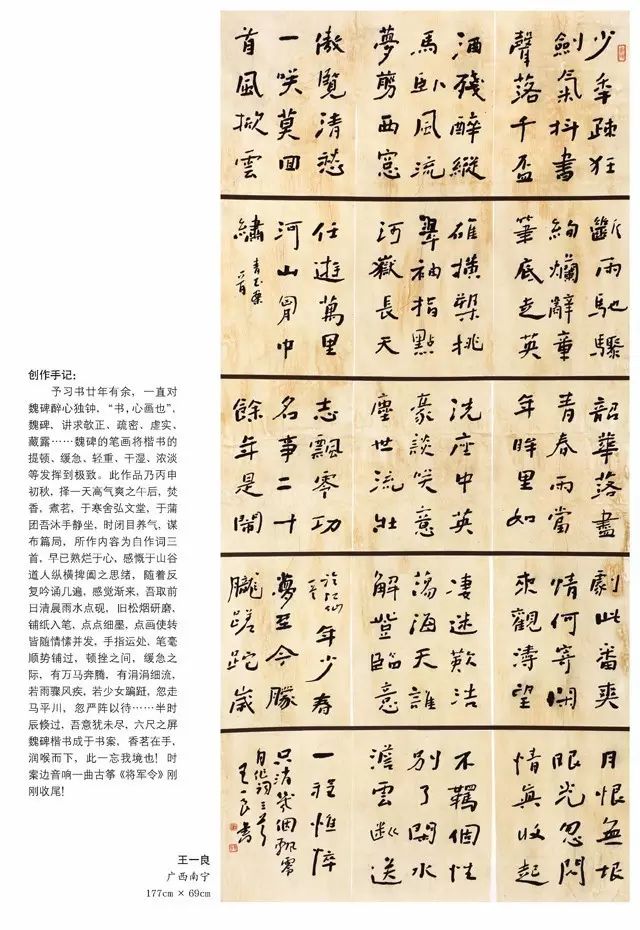 少年疎狂
劍氣抖書
聲落千盃
酒殘醉縱
馬卧風流
夢剪西窓
傲覽清愁
一咲莫回
首風掀雲
斷雨馳驟
絢爛辭章
筆底走英
雄横槊挑
翠袖指點
河嶽長天
任遊萬里
河山胷中
繡 青玉案
韶華落盡
青春雨當
年眸里如
洗座中英
豪談咲意
塵世流壯
志飄零功
名事二十
餘年是閙
劇此番爽
情何寄閑
來觀濤望
凄迷歎浩
蕩海天誰
解登臨意
年少春
夢至今朦
朧蹉跎歲
月恨無垠
眼光忽閃
情真收起
不羈個性
別了閑水
澹雲斷送
一程憔悴
只清個飄零
自作詞三首
王一良書
创作手记:
予习书廿年有余，一直对
魏碑醉心独钟，“书，心画也”，
魏碑、讲求欹正、疏密、虚实、
藏露……魏碑的笔画将楷书的
提顿、缓急、轻重、干湿、浓淡
等发挥到极致。此作品乃丙申
初秋，择一天高气爽之午后，焚
香，煮茗，于寒舍弘文堂，于蒲
团吾沐手静坐，时闭目养气，谋
布篇局，所作内容为自作词三
首，早已熟烂于心，感慨于山谷
道人纵横捭阖之思绪，随着反
复吟诵几遍，感觉渐来，吾取前
日清晨雨水点砚，旧松烟研磨，
铺纸入笔，点点细墨，点画使转
皆随情愫并发，手指运处，笔毫
顺势铺过，顿挫之间，缓急之
际，有万马奔腾，有涓涓细流，
若雨骤风疾，若少女蹁跹，忽走
马平川，忽严阵以待……半时
辰倏过，吾意犹未尽，六尺之屏
魏碑楷书成于书案，香茗在手，
润喉而下，此一忘我境也！时
案边音响一曲古筝《将军令》刚
刚收尾！
王一良
广西南宁
177cm × 69cm